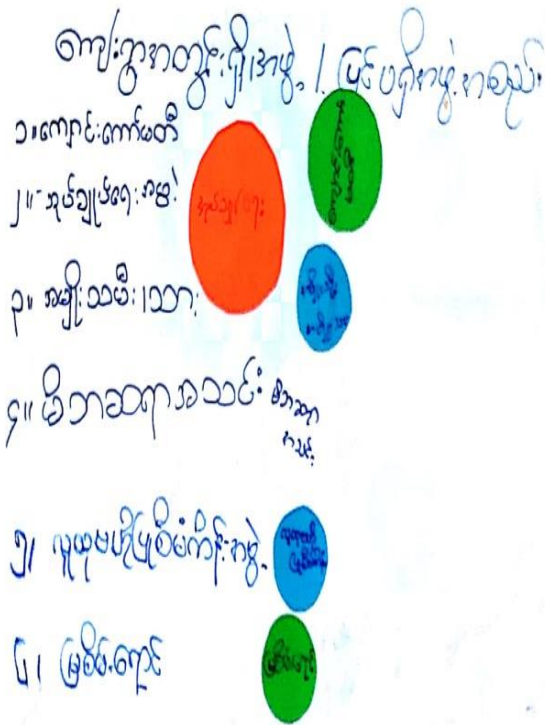 ကျေးရွာအတွင်းရှိ၊အဖွဲ့ / ပြင်ပရှိအဖွဲ့အစည်း
၁။ကျောင်းကော်မတီ
၂။ အုပ်ချုပ်ရေးအဖွဲ့
အုပ်ချုပ်ရေး
၃။ အမျိုးသမီး၊သား
၄။ မိဘဆရာအသင်း မိဘဆရာ
အသင်း
၅၊ လူထုဗဟိုပြုစီမံကိန်းအဖွဲ့
လူထုဗဟိုပြုစီမံကိန်း
၆၊ မြစိမ်းရောင်
မြစိမ်းရောင်